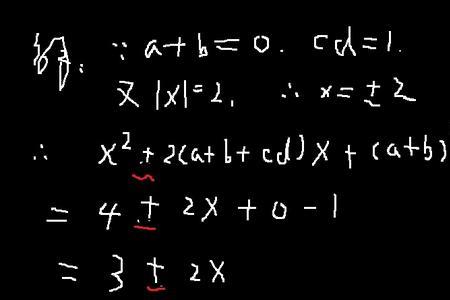 解: ∵ a+b=0. cd=1.
又 |x|=2, ∴ x=±2
∴ x²±2(a+b+cd)x+(a+b)
=4±2x+0-1
=3±2x